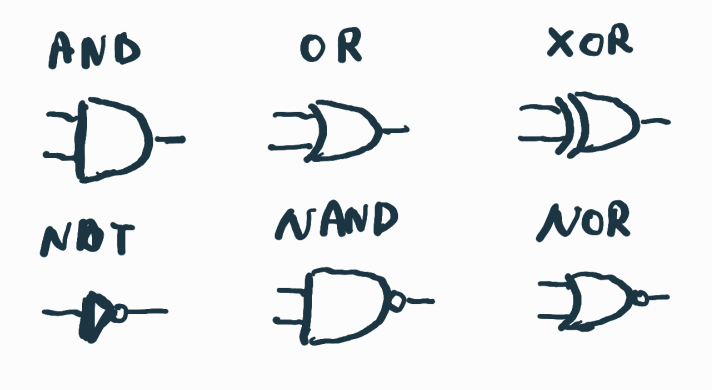 AND OR XOR
NOT NAND NOR